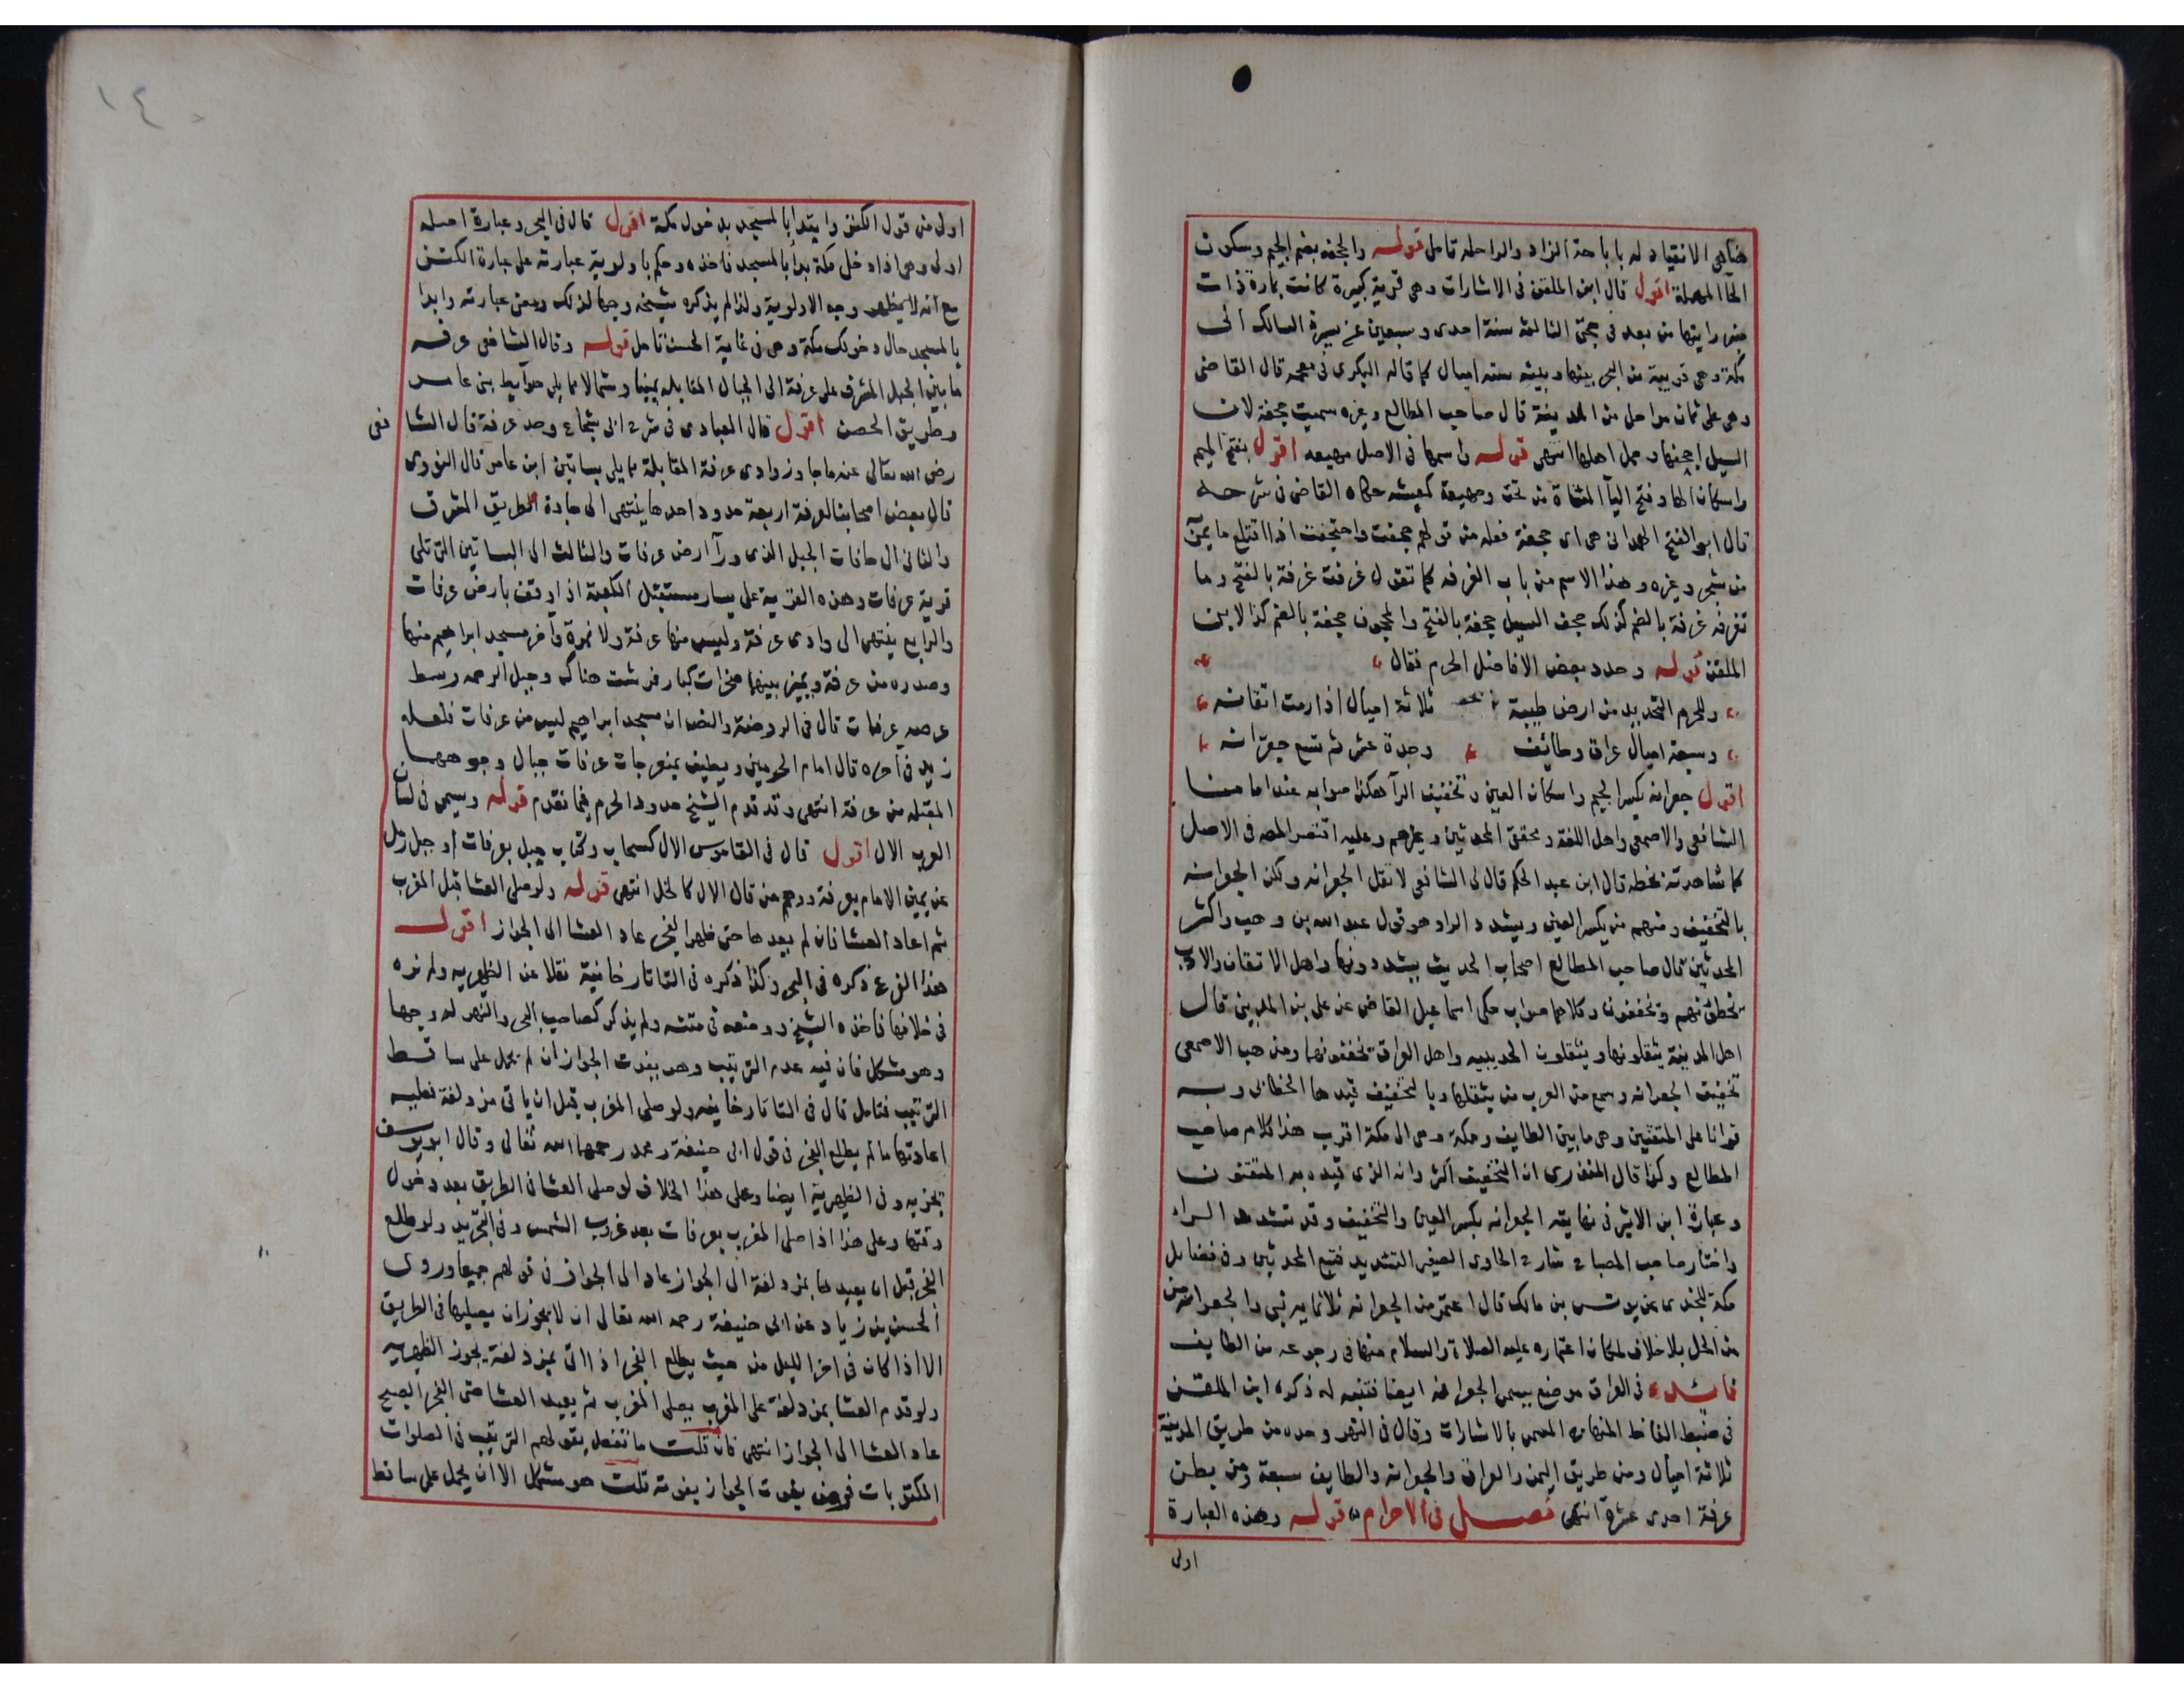 هنا هي الانقياد له باباحة الزاد والراحلة تامل قوله والجحفه بضم الجيم وسكون
الحا المهملة اقول قال ابن الملقن في الاشارات وهي قرية كبيرة كانت عامرة ذات
منبر رايتها من بعد في حجتي الثالثة سنة احدى وسبعين عن يسرة السالك الى
مكة وهي قريبة من البحر بينها وبينه ستة اميال كما قاله البكري في معجمه قال القاضي
وهي على ثمان مراحل من المدينة قال صاحب المطالع وغيره سميت جحفة لان
السيل اجحفها وحمل اهلها انتهى قوله واسمها في الاصل مهيعه اقول بفتح الميم
واسكان الها وفتح اليآ المثناة من تحت ومهيعة كمعيشه حكاه القاضي في شرحه
قال ابو الفتح الهمداني هي اي جحفة فعله من قولهم جحفت واجتحفت اذا اقتلع ما يمر
من شجر وغيره وهذا الاسم من باب الغرفه كما تقول غرفت غرفة بالفتح وما
تغرفه غرفة بالضم كذلك جحف السيل جحفة بالفتح والمجحوف جحفة بالضم كذا لابن
الملقن قوله وحدد بعض الافاضل الحرم فقال
وللحرم التحديد من ارض طيبة ثلاثة اميال اذا رمت اتقانه
وسبعة اميال عراق وطائف وجدة عشر ثم تسع جعرانه
اقول جعرانه بكسر الجيم واسكان العين وتخفيف الرآ هكذا صوابه عند امامنا
الشافعي والاصمعي واهل اللغة ومحققي المحدثين وغيرهم وعليه اقتصر المصه في الاصل
كما شاهدته بخطه قال ابن عبد الحكم قال لي الشافعي لا تقل الجعرانه ولكن الجعرانه
بالتخفيف ومنهم من يكسر العين ويشدد الراء وهو قول عبد الله بن وهب واكثر
المحدثين قال صاحب المطالع اصحاب الحديث يشددونها واهل الاتقان والادب
تخطئونهم وتخففون وكلاهما صواب حكى اسماعيل القاضي عن علي بن المديني قال
اهل المدينة يثقلونها ويثقلون الحديبيه واهل العراق تخففونهما ومذهب الاصمعي
تخفيف الجعرانه وسمع من العرب من يثقلها وبالتخفيف قيدها الخطابي وبه
قرانا على المتقنين وهي ما بين الطايف ومكة وهي الى مكة اقرب هذا كلام صاحب
المطالع وكذا قال المنذري ان التخفيف اكثر وانه الذي قيده به المتقنون
وعبارة ابن الاثير في نهايته الجعرانه بكسر العين والتخفيف وقد تشدد الراء
واختار صاحب المصباح شارح الحاوي الصغير التشديد فتبع المحدثين وفي فضايل
مكة للجندي عن يونس بن مالك قال اعتمر من الجعرانه ثلاثمايه نبي والجعرانه من
من الحل بلا خلاف لمكان اعتماره عليه الصلاة والسلام منها في رجوعه من الطايف
فائده في العراق موضع يسمى الجعرانه ايضا فتنبه له ذكره ابن الملقن
في ضبط الفاظ المنهاج المسمى بالاشارات وقال في النهر وحده من طريق المدينة
ثلاثة اميال ومن طريق اليمن والعراق والجعرانه والطايف سبعة ومن بطن
عرفة احدى عشرة انتهى فصل في الاحرام قوله وهذه العبارة
اولى
١٤
اولى من قول الكنز وابتدا بالمسجد بدخول مكة اقول قال في البحر وعبارة اصله
اولى وهي اذا دخل مكة بدا بالمسجد فاخذه وحكم باولوية عبارته على عبارة الكنز
مع انه لا يظهر وجه الاولوية ولذا لم يذكره شيخه وجها لذلك ومعنى عبارته وابدا
بالمسجد حال دخولك مكة وهي في غاية الحسن تامل قوله وقال الشافعي عرفه
ما بين الجبل المشرف على عرفة الى الجبال المقابله يمينا وشمالا مما يلي حوايط بني عامر
وطريق الحصن اقول قال العبادي في شرح ابي شجاع وحد عرفة قال الشا فعي
رضي الله تعالى عنه ما جاوز وادي عرفة المقابلة مما يلي بساتين ابن عامر قال النووي
قال بعض اصحابنا لعرفة اربعة حدود احدها ينتهى الى جادة الطريق المشرق
والثاني الى حافات الجبل الذي ورآ ارض عرفات والثالث الى البساتين التي تلي
قرية عرفات وهذه القرية على يسار مستقبل الكعبة اذا وقف بارض عرفات
والرابع ينتهى الى وادي عرفة وليس منها عرفة ولا نمرة وآخر مسجد ابراهيم منها
وصدره من عرفة ويميز بينهما صخرات كبار فرشت هناك وجبل الرحمه وسط
عرصه عرفات قال في الروضة والنص ان مسجد ابراهيم ليس من عرفات فلعله
زيد في آخره قال امام الحرمين ويطيف بمنعرجات عرفات جبال وجوهها
المقبله من عرفة انتهى وقد قدم الشيخ حدود الحرم فيما تقدم قوله ويسمى في لسان
العرب الال اقول قال في القاموس الال كسحاب وكتاب جبل بعرفات او جبل رمل
عن يمين الامام بعرفة ووهم من قال الال كالخل انتهى قوله ولو صلى العشا قبل المغرب
ثم اعاد العشا فان لم يعدها حتى ظهر الفجر عاد العشا الى الجواز اقول
هذا الفرع ذكره في البحر وكذا ذكره في التاتارخانية نقلا عن الظهريه ولم نره
في خلافها فاخذه الشيخ ووضعه في متنه ولم يذكر كصاحب البحر والنهر له وجها
وهو مشكل فان فيه عدم الترتيب وهو بفوت الجواز ان لم يحمل على ساقط
الترتيب فتامل قال في التاتارخانيه ولو صلى المغرب قبل ان ياتي مزدلفة فعليه
اعادتها ما لم يطلع الفجر في قول ابي حنيفة ومحمد رحمهما الله تعالى وقال ابو يوسف
يجزيه وفي الظهرية ايضا وعلى هذا الخلاف لو صلى العشا في الطريق بعد دخول
وقتها وعلى هذا اذا صلى المغرب بعرفات بعد غروب الشمس وفي التجريد ولو طلع
الفجر قبل ان يعيدها بمزدلفة الى الجواز عاد الى الجواز في قولهم جميعا وروى
الحسن بن زياد عن ابي حنيفة رحمه الله تعالى ان لا يجوز ان يصليها في الطريق
الا اذا كان في اخر الليل من حيث يطلع الفجر اذا اتى بمزدلفة يجوز الظهريه
ولو قدم العشا بمزدلفة على المغرب يصلي المغرب ثم يعيد العشا حتى الفجر الصبح
عاد العشا الى الجواز انتهى فان قلت ما تفعل بقولهم الترتيب في الصلوات
المكتوبات فرض يفوت الجواز بفوته قلت هو مشكل الا ان يحمل على ساقط